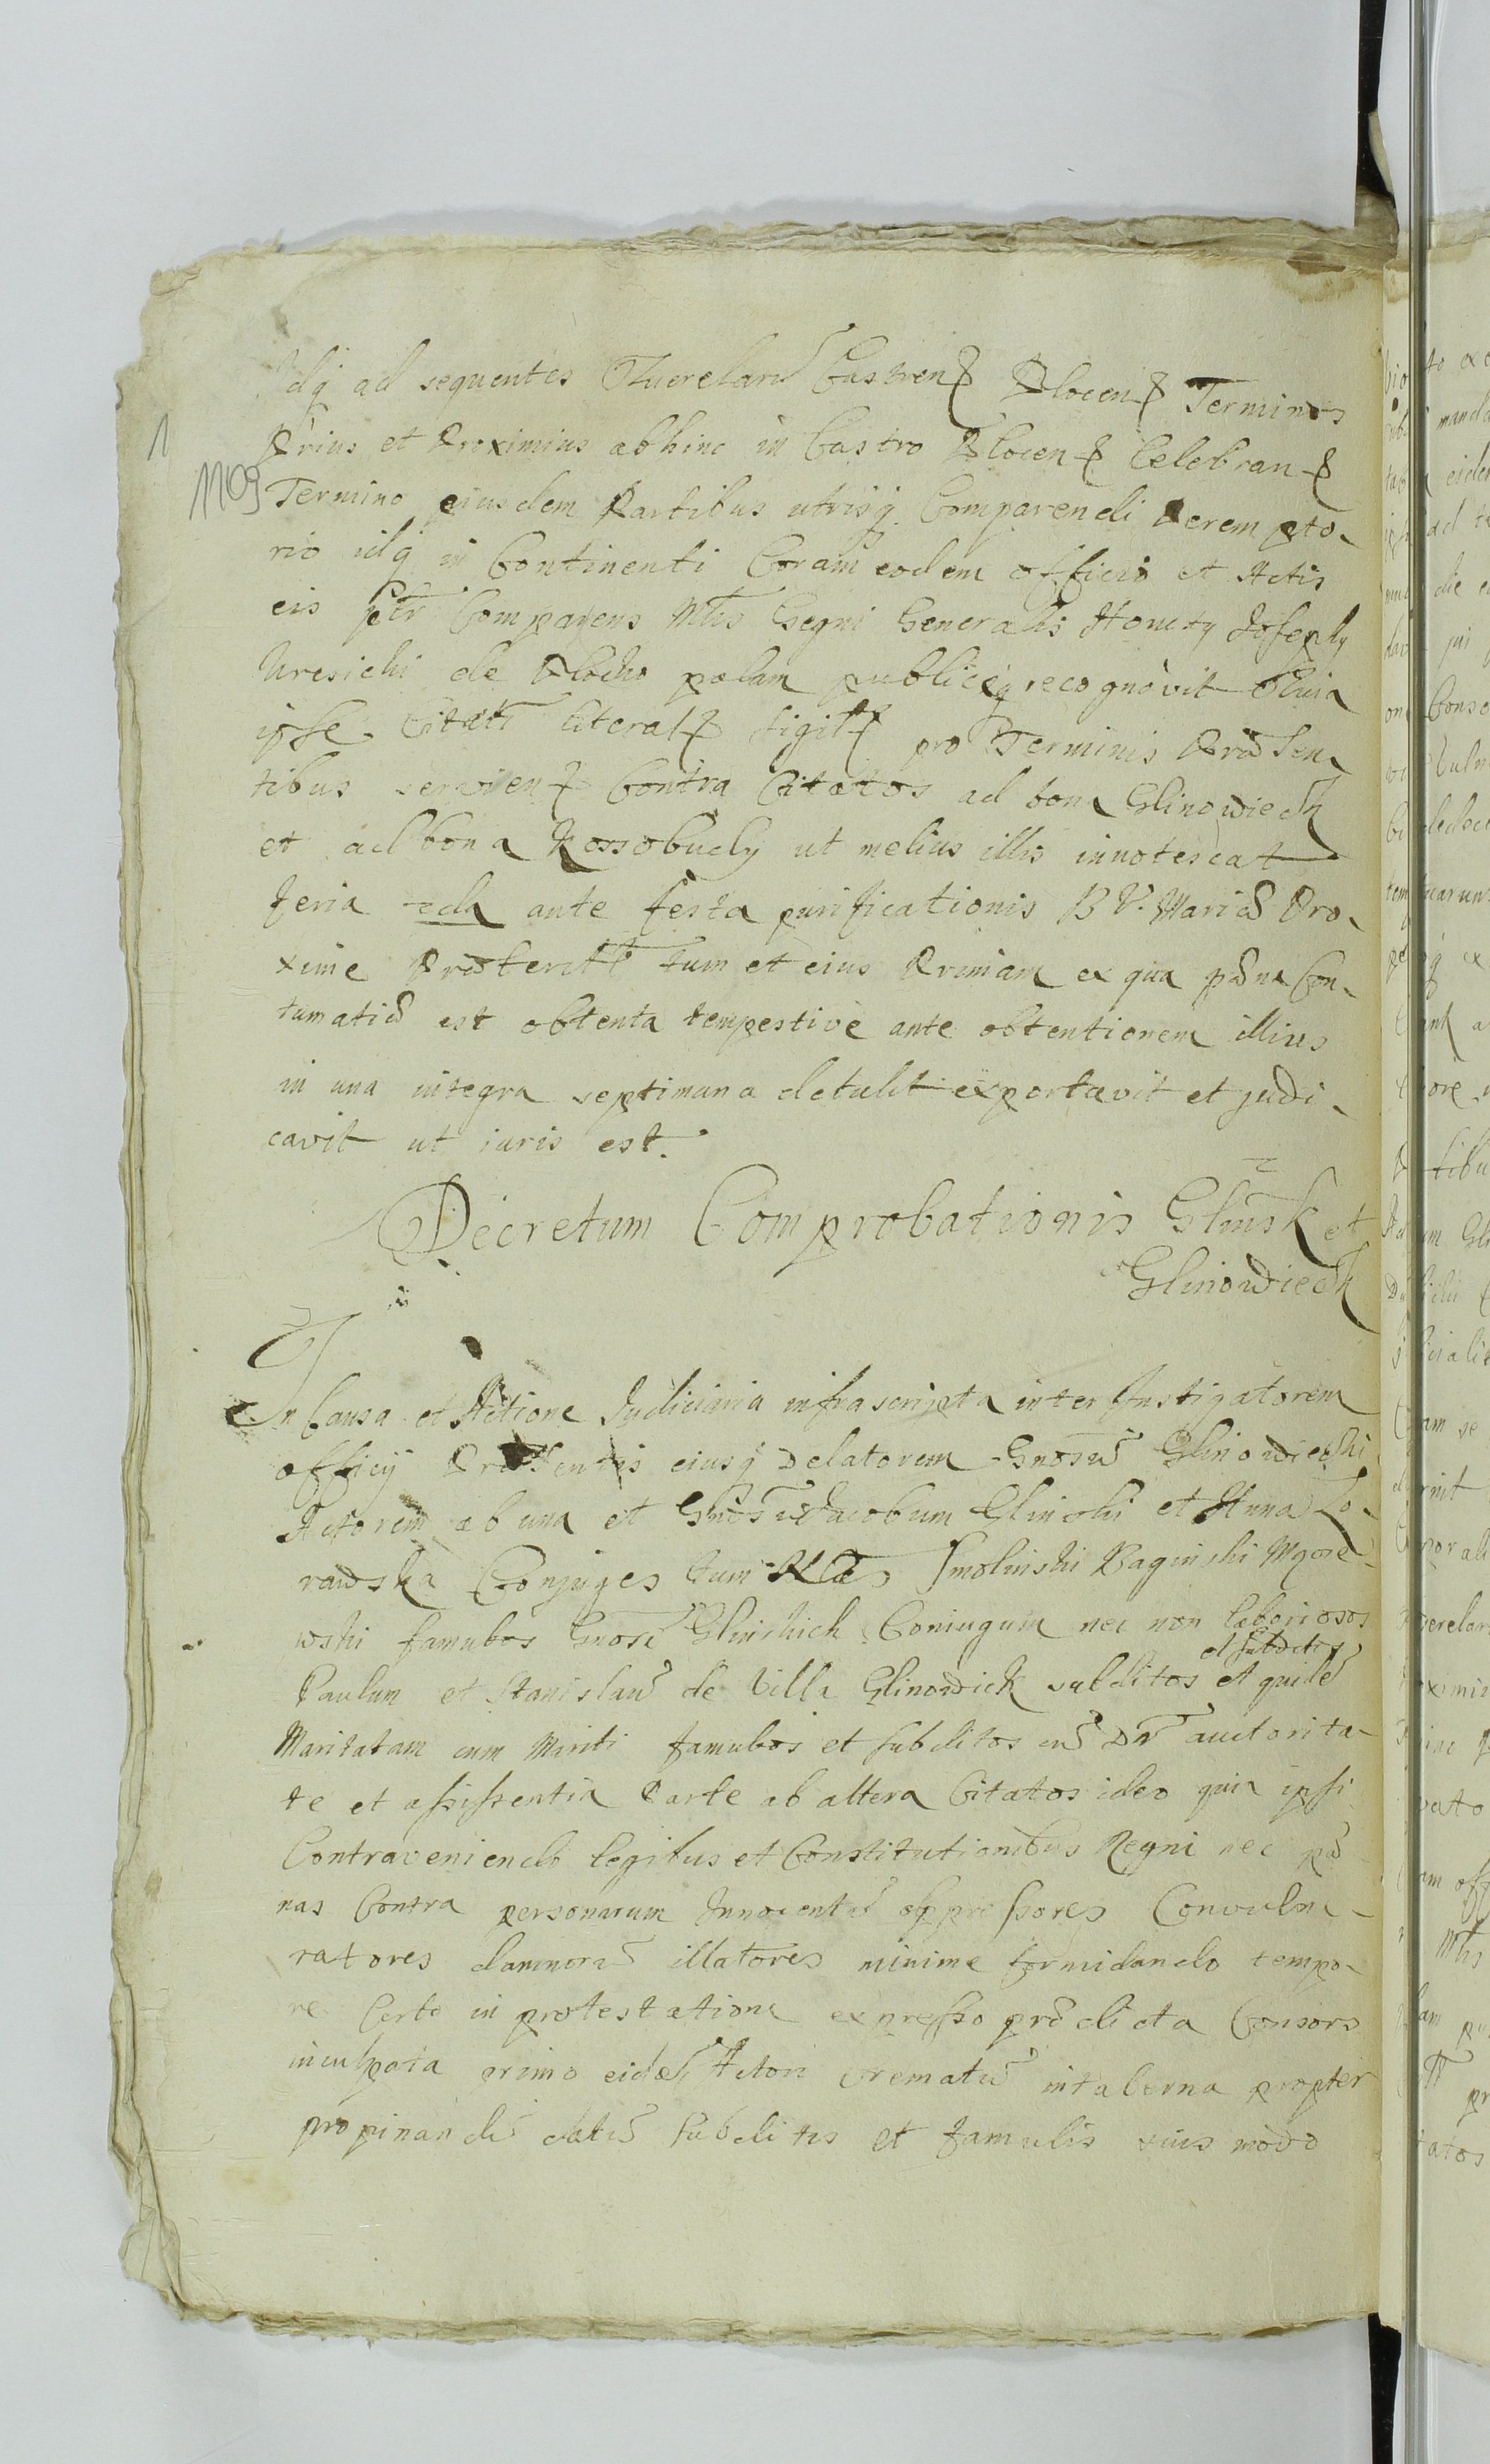 idq ad sequentes Querelarũ Castren Plocen Terminos
Prius et Proximius abhinc in Castro Plocen Celebran
1109
Termino eiusdem Partibus utrisq Comparendi Perempto-
rio idq in Continenti Coram eodem officio et Actis
eis ptr Comparens Mtis Regni Generalis Honesty Joseph
Uresichi de Plocko palam publiceq recognovit Quia
ipse Citati literal sigil pro Terminis Præsen-
tibus servien Contra Citatos ad bona Glinowieck
et ad bona Rossobudy ut melius illis innotescat
feria 2da ante festa purificationis B V. Mariæ Pro-
xime Præterit tum et eius Primam ex qua pæna Con-
tumatiæ est obtenta tempestive ante obtentionem illius
in una integra septimana detulit exportavit et judi-
cavit ut iuris est.
Decretum Comprobationis Glinsk et
Glinowieck
In Causa et Actione Judiciaria infrascripta inter Instigatorem
officij Præsentis eiusq Delatorem Gnosũ Glinowiecki
Actorem ab una et Gnosũ Jacobum Glinski et Anna Zo-
rawska Conjuges tum Smolinski Baginski
wski famulos Gnosũ Glinskich Coniugum nec non laboriosos
et subditos
Paulum et Stanislaũ de Villa Glinowieck subditos et quidẽ
Maritatam cum Mariti famulos et subditos cũ Dñ auctorita-
te et assistentia Parte ab altera Citatos ideo quia ipsi
Contraveniendo legibus et Constitutionibus Regni nec pæ
nas Contra personarum Innocentũ oppressores Convulne-
ratores damnorũ illatores minime formidando tempo-
re Certo in protestatione expresso prædicta Consors
inculpata primo eidem Actori crematũ in taberna propter
propinandũ datũ subditis et famulis suis modo